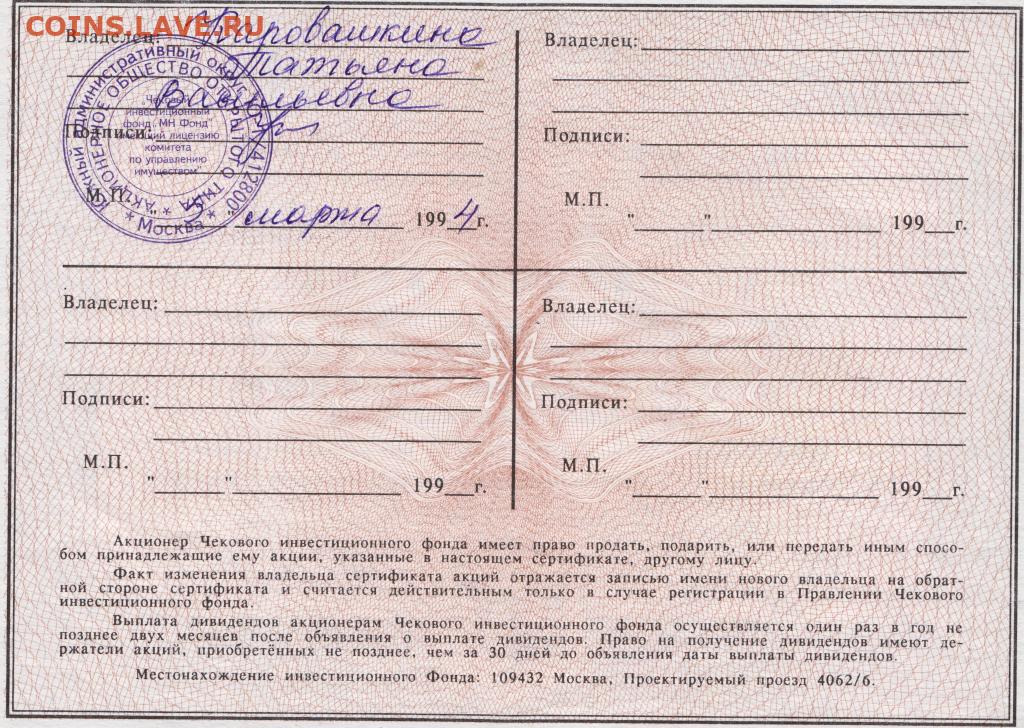 COINS.LAVE.RU
Владелец:
Татьяна
Васильевна
Подписи:
М.П.
"5" марта 1994 г.
Южный административный округ
АКЦИОНЕРНОЕ ОБЩЕСТВО ОТКРЫТОГО ТИПА
"Чековый
инвестиционный
фонд "МН Фонд"
имеющий лицензию
комитета
по управлению
имуществом"
* Москва *
Владелец:
Подписи:
М.П.
" " 199 г.
Владелец:
Подписи:
М.П.
" " 199 г.
Владелец:
Подписи:
М.П.
" " 199 г.
Акционер Чекового инвестиционного фонда имеет право продать, подарить, или передать иным спосо-
бом принадлежащие ему акции, указанные в настоящем сертификате, другому лицу.
Факт изменения владельца сертификата акций отражается записью имени нового владельца на обрат-
ной стороне сертификата и считается действительным только в случае регистрации в Правлении Чекового
инвестиционного фонда.
Выплата дивидендов акционерам Чекового инвестиционного фонда осуществляется один раз в год не
позднее двух месяцев после объявления о выплате дивидендов. Право на получение дивидендов имеют де-
ржатели акций, приобретённых не позднее, чем за 30 дней до объявления даты выплаты дивидендов.
Местонахождение инвестиционного Фонда: 109432 Москва, Проектируемый проезд 4062/6.